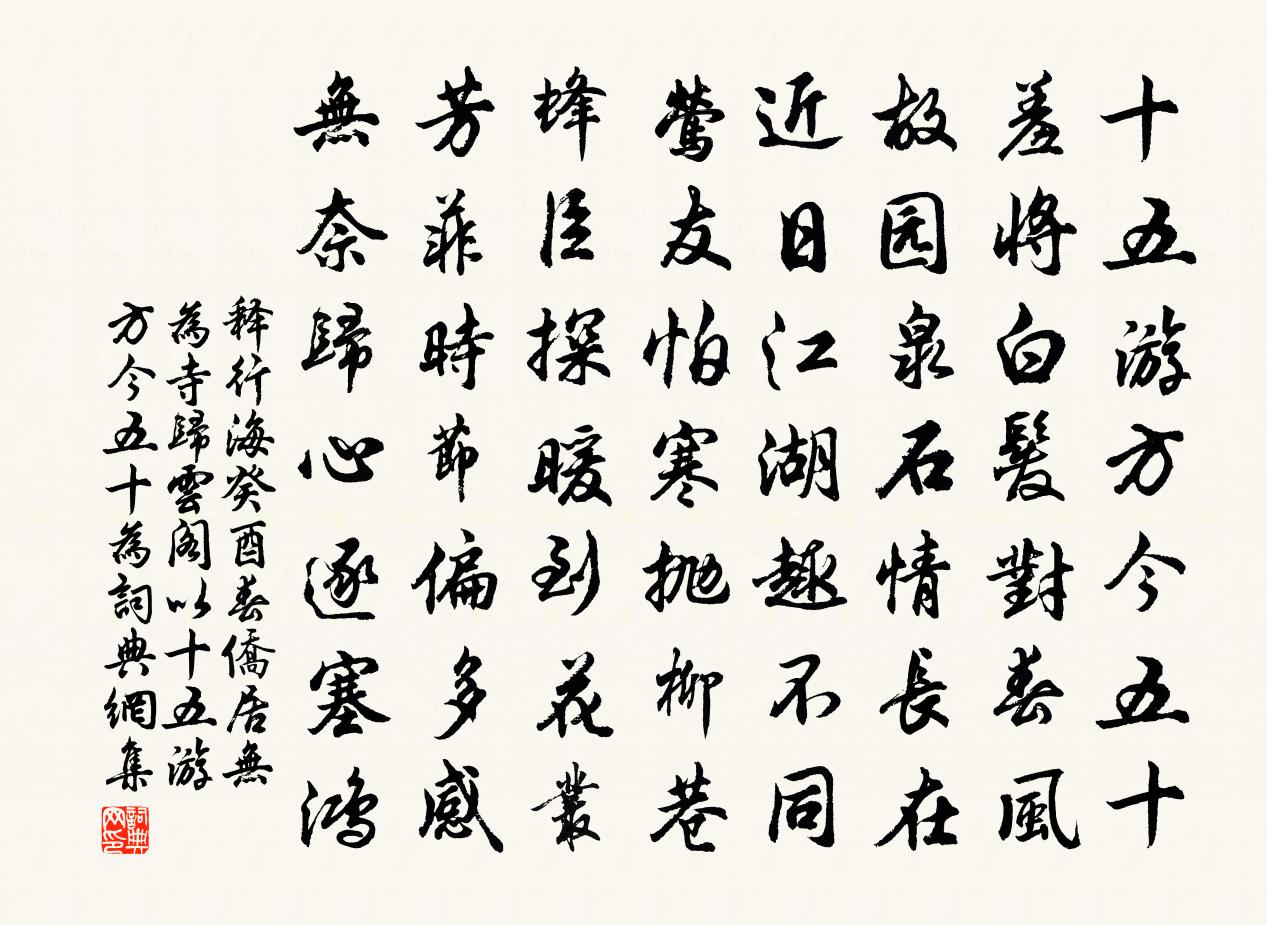 十五游方今五十
羞將白髮對春風
故园泉石情長在
近日江湖趣不同
鶯友怕寒抛柳巷
蜂臣探暖到花叢
芳菲時節偏多感
無奈歸心逐塞鴻
释行海癸酉春僑居無
為寺歸雲阁以十五游
方今五十為詞典網集
詞典网印